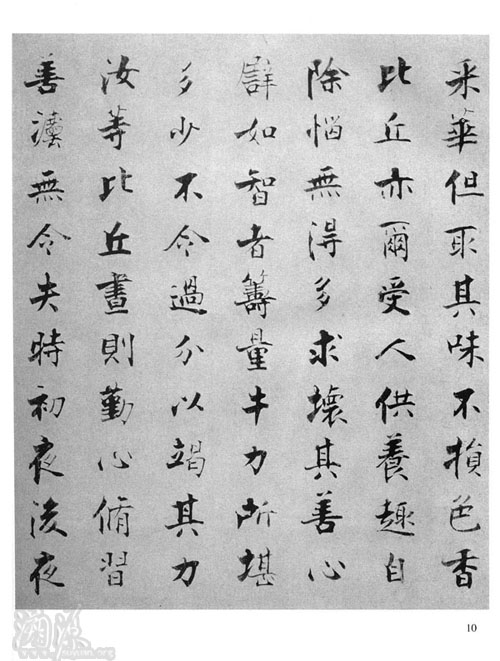 采華但取其味不損色香
比丘亦爾受人供養趣自
除惱無得多求壞其善心
譬如智者籌量牛力所堪
多少不令過分以竭其力
汝等比丘晝則勤心脩習
善灋無令失時初夜後夜
10
溯源